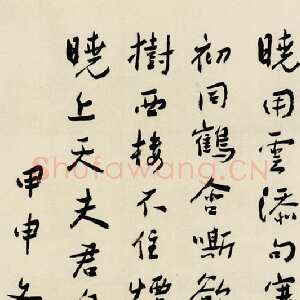 曉用雲添句寒
初同鶴舍嘶
樹西樓不住煙
曉上天夫君
甲申冬
Shufawang.CN